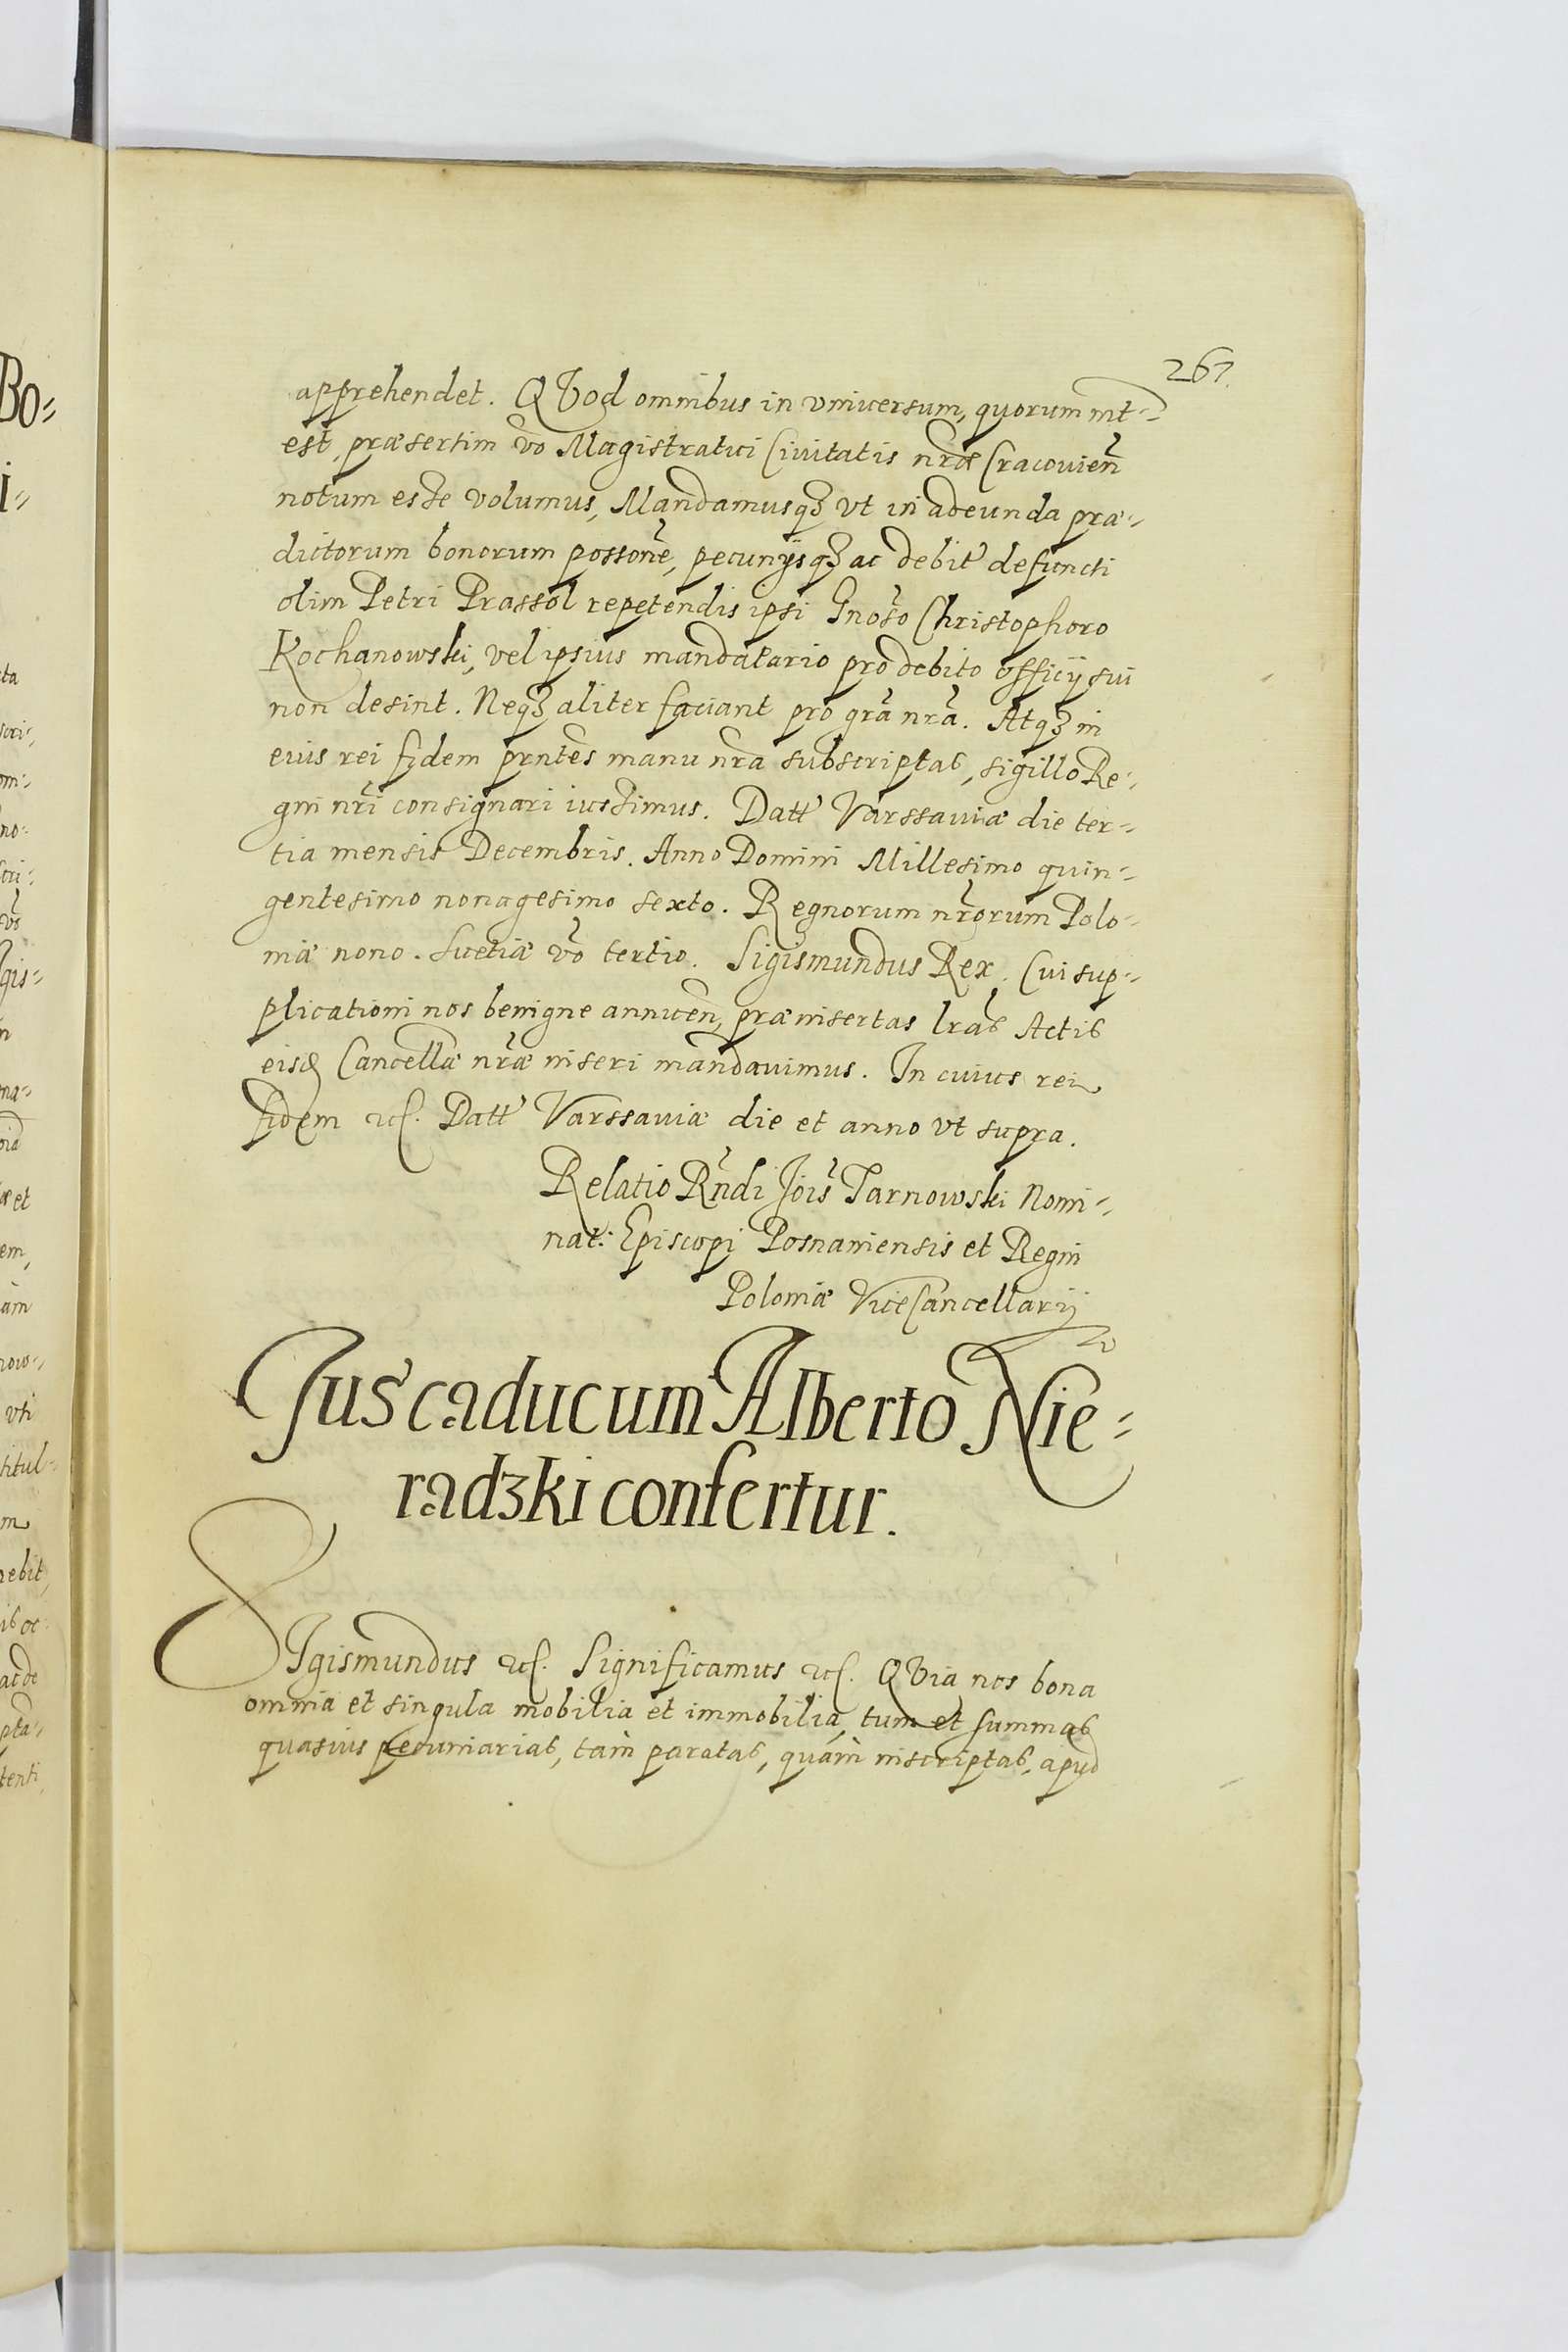 267.
apprehendet. QVod omnibus in vniuersum, quorum int-
est, præsertim vo Magistratui Ciuitatis nræ Cracouien
notum esse volumus, Mandamusqʒ vt in adeunda præ-
dictorum bonorum possone, pecunijsqʒ ac debit defuncti
olim Petri Prassol repetendis ipsi Gnoso Christophoro
Kochanowski, vel ipsius mandatario pro debito officij sui
non desint. Neqʒ aliter faciant pro gra nra. Atqʒ in
eius rei fidem prntes manu nra subscriptas, sigillo Re-
gni nri consignari iussimus. Datt Varssauiæ die ter-
tia mensis Decembris. Anno Domini Millesimo quin-
gentesimo nonagesimo sexto. Regnorum nrorum Polo-
niæ nono. Suetiæ vo tertio. Sigismundus Rex. Cui sup-
plicationi nos benigne annuen, præinsertas lras Actis
eisd Cancellæ nræ inseri mandauimus. In cuius rei
fidem etc. Datt Varssauiæ die et anno vt supra.
Relatio Rndi Jois Tarnowski Nomi-
nat: Episcopi Posnaniensis et Regni
Poloniæ ViceCancellarij
Jus caducum Alberto Nie-
radzki confertur.
SIgismundus etc. Significamus etc. QVia nos bona
omnia et singula mobilia et immobilia, tum et summas
quasuis pecuniarias, tàm paratas, quàm inscriptas, apud